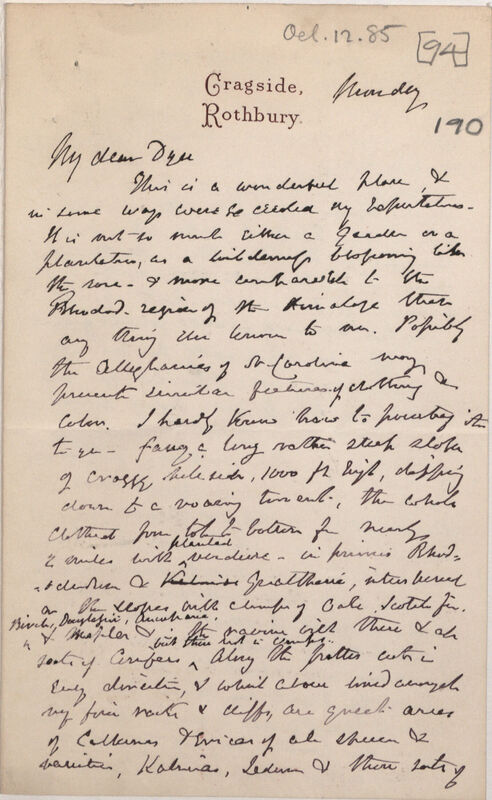 Oct. 12. 85
[94]
Cragside,
Rothbury.
Monday
190
My dear Dyer
This is a wonderful place, &
in some ways exceeded my expectations.
It is not so much either a garden or a
plantation, as a wilderness blossoming like
the rose - & more comparable to the
Rhodod. region of the Himalaya than
any thing else known to me. Possibly
the Alleghanies of N. Carolina may
present similar features of clothing &
color. I hardly know how to pourtray it
to you - fancy a long rather steep slope
of craggy hill side, 1000 ft high, dipping
down to a roaring torrent, the whole
clothed from top to bottom for nearly
2 miles with planted verdure - in primis Rhod-
odendron & Gaultheria, interspersed
on the slopes with clumps of Oak, Scotch fir,
Birch, Douglasii, Araucaria,
& & the ravine with these & all
sorts of Conifers but these not in clumps. Along the paths cut in
every direction, & which climb amongst
my fine rocks & cliffs, are great areas
of Callunas & Ericas of all species &
varieties, Kalmias, Ledum & those sorts of